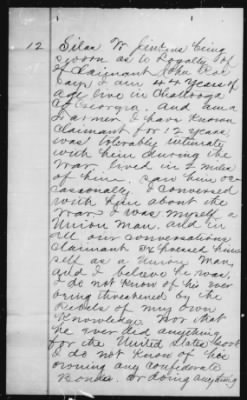 12 Silas W Jenkins being
sworn as to Loyalty of
Claimant John
Says I am 44 years of
age live in Chattooga
Co Georgia. And am a
Farmer I have known
Claimant for 12 years,
was tolerably intimate
with him during the
War. Lived in 2 miles
of him. Saw him oc-
casionally. I conversed
with him about the
War. I was myself a
Union man. and in
all our conversations
Claimant expressed him
self as a Union Man,
and I believe he was.
I do not know of his ever
being threatened by the
Rebels of my own
Knowledge. nor that
he ever did anything
for the United States Govt
I do not know of his
owning any confederate
Bonds. or doing anything